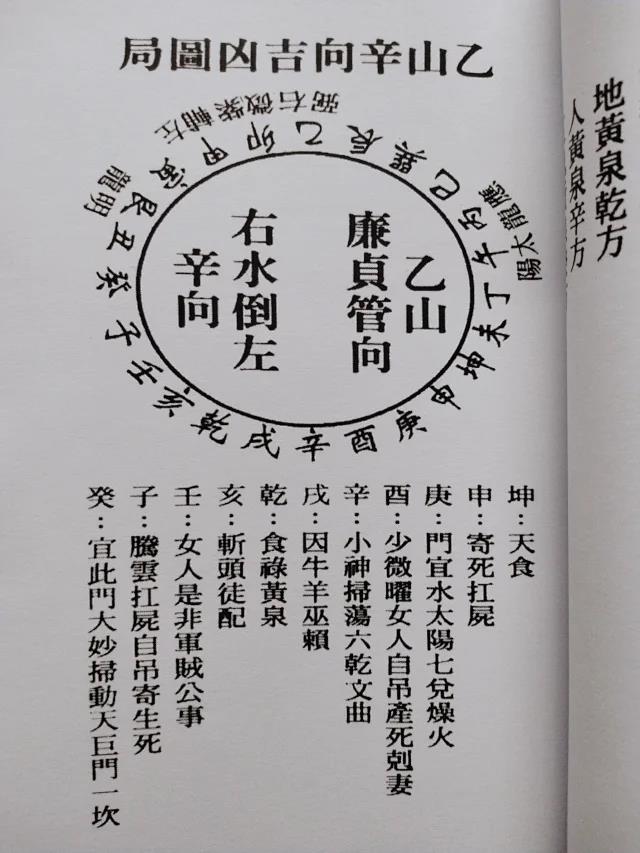 乙山辛向吉凶圖局
左輔紫微右弼
明龍
應龍太陽
壬子癸丑艮寅甲卯乙辰巽巳丙午丁未坤申庚酉辛戌乾亥
乙山
廉貞管向
右水倒左
辛向
坤：天食
申：寄死扛屍
庚：門宜水太陽七兌燥火
酉：少微曜女人自吊產死剋妻
辛：小神掃蕩六乾文曲
戌：因牛羊巫賴
乾：食祿黃泉
亥：斬頭徒配
壬：女人是非軍賊公事
子：騰雲扛屍自吊寄生死
癸：宜此門大妙掃動天巨門一坎
地黃泉乾方
人黃泉辛方